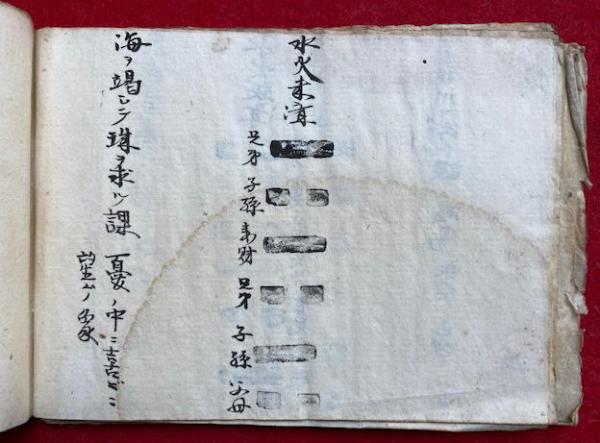 水火未濟
兄弟 子孫 妻財 兄弟 子孫 父母
海ヲ竭シテ珠ヲ求ル課 憂ノ中ニ喜ビニ
望ムノ象